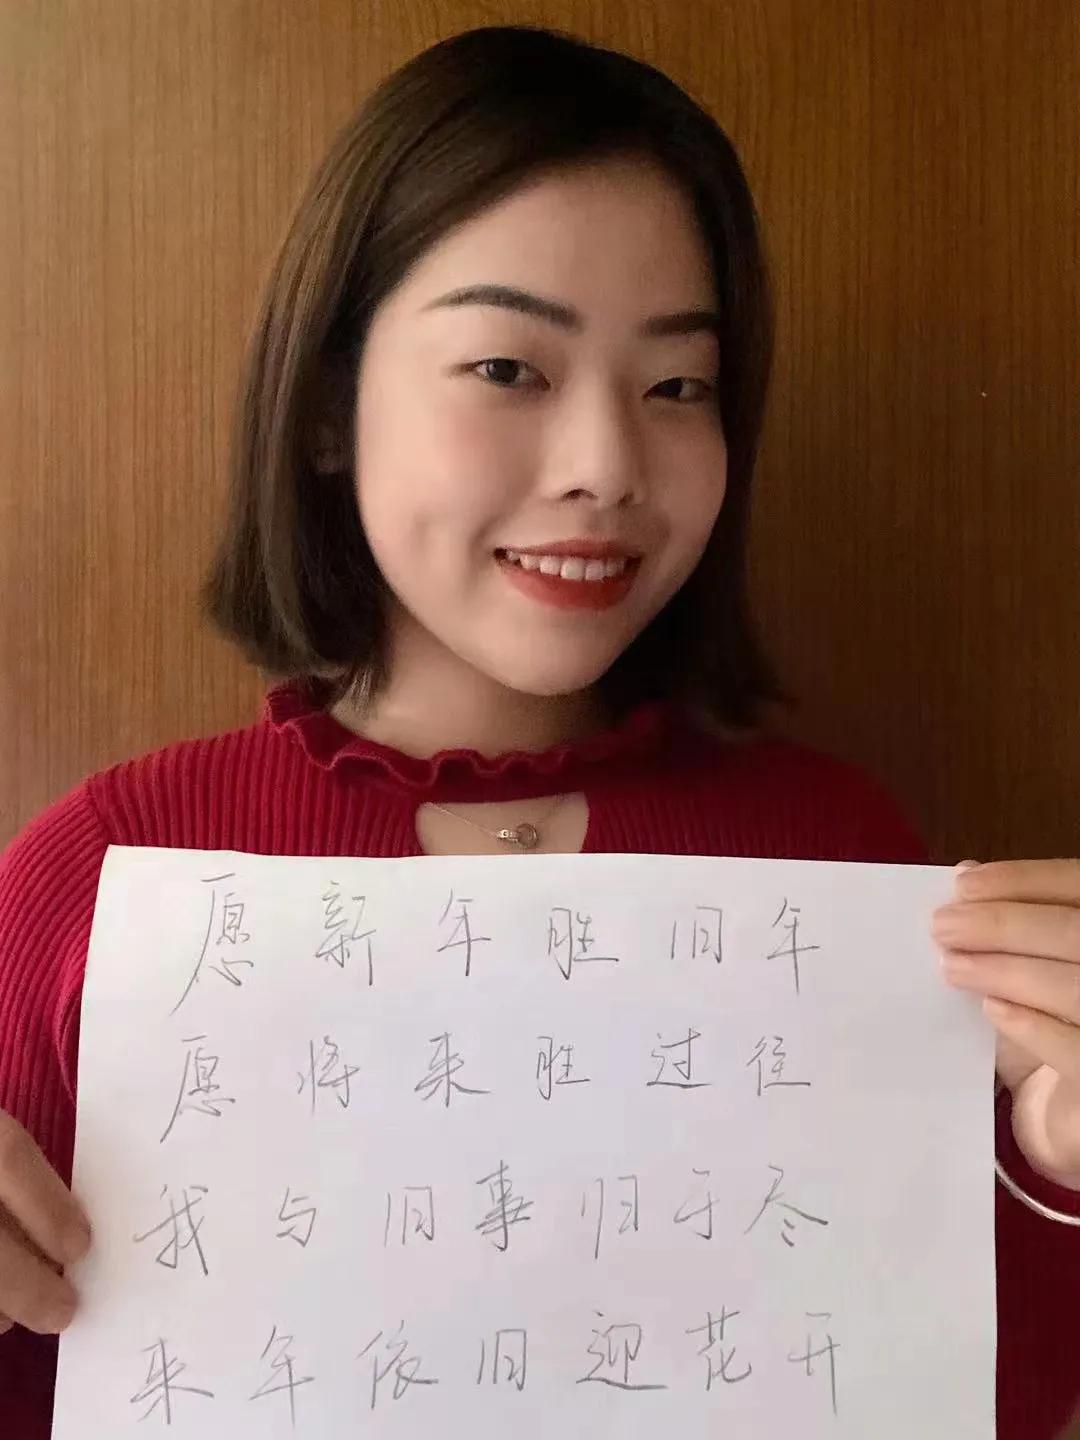 愿新年胜旧年
愿将来胜过往
我与旧事归于尽
来年依旧迎花开